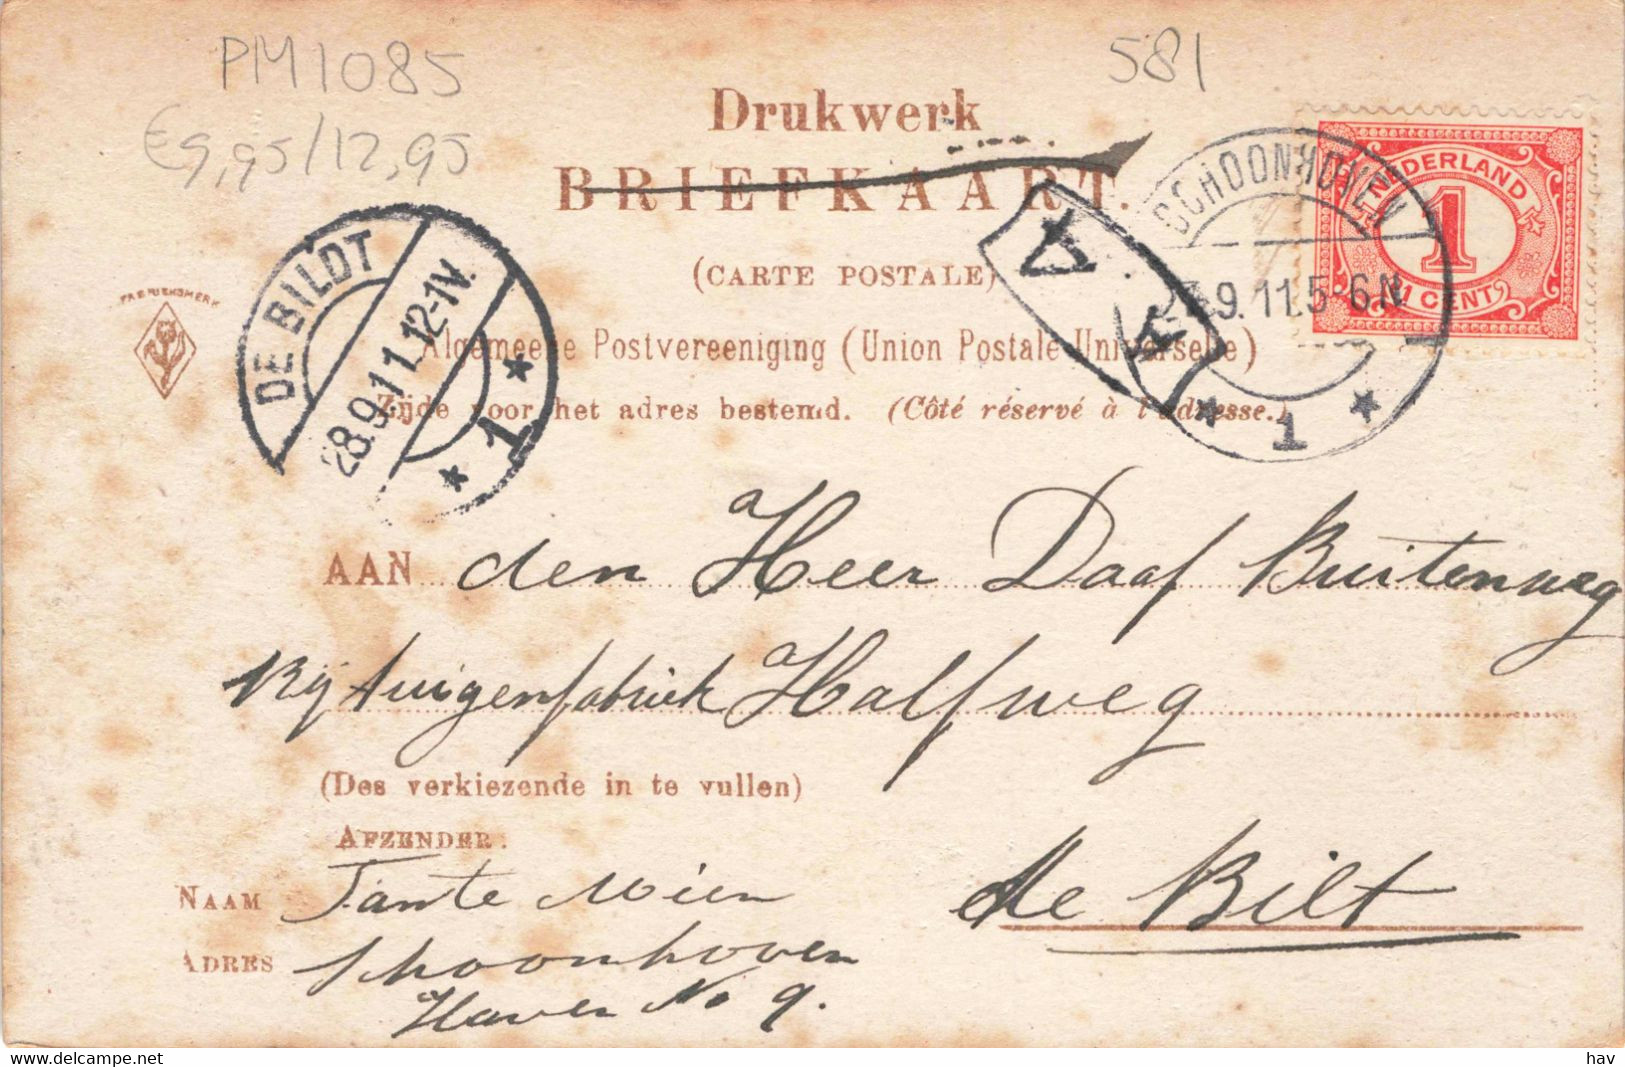 PM1085
581
€9,95/12,95
Drukwerk
BRIEFKAART.
(CARTE POSTALE)
Algemeene Postvereeniging (Union Postale Universelle)
Zijde voor het adres bestemd. (Côté réservé à l'adresse.)
FABRIEKSMERK
DE BILDT
28.9.11.12-1V.
1
SCHOONHOVEN
.9.11.5-6N
1
NEDERLAND
1
1 CENT
AAN den Heer Daaf Buitenweg
Rijtuigenfabriek Halfweg
de Bilt
(Des verkiezende in te vullen)
AFZENDER:
NAAM Tante Mien
ADRES Schoonhoven
Haven No 9.
delcampe.net
hav